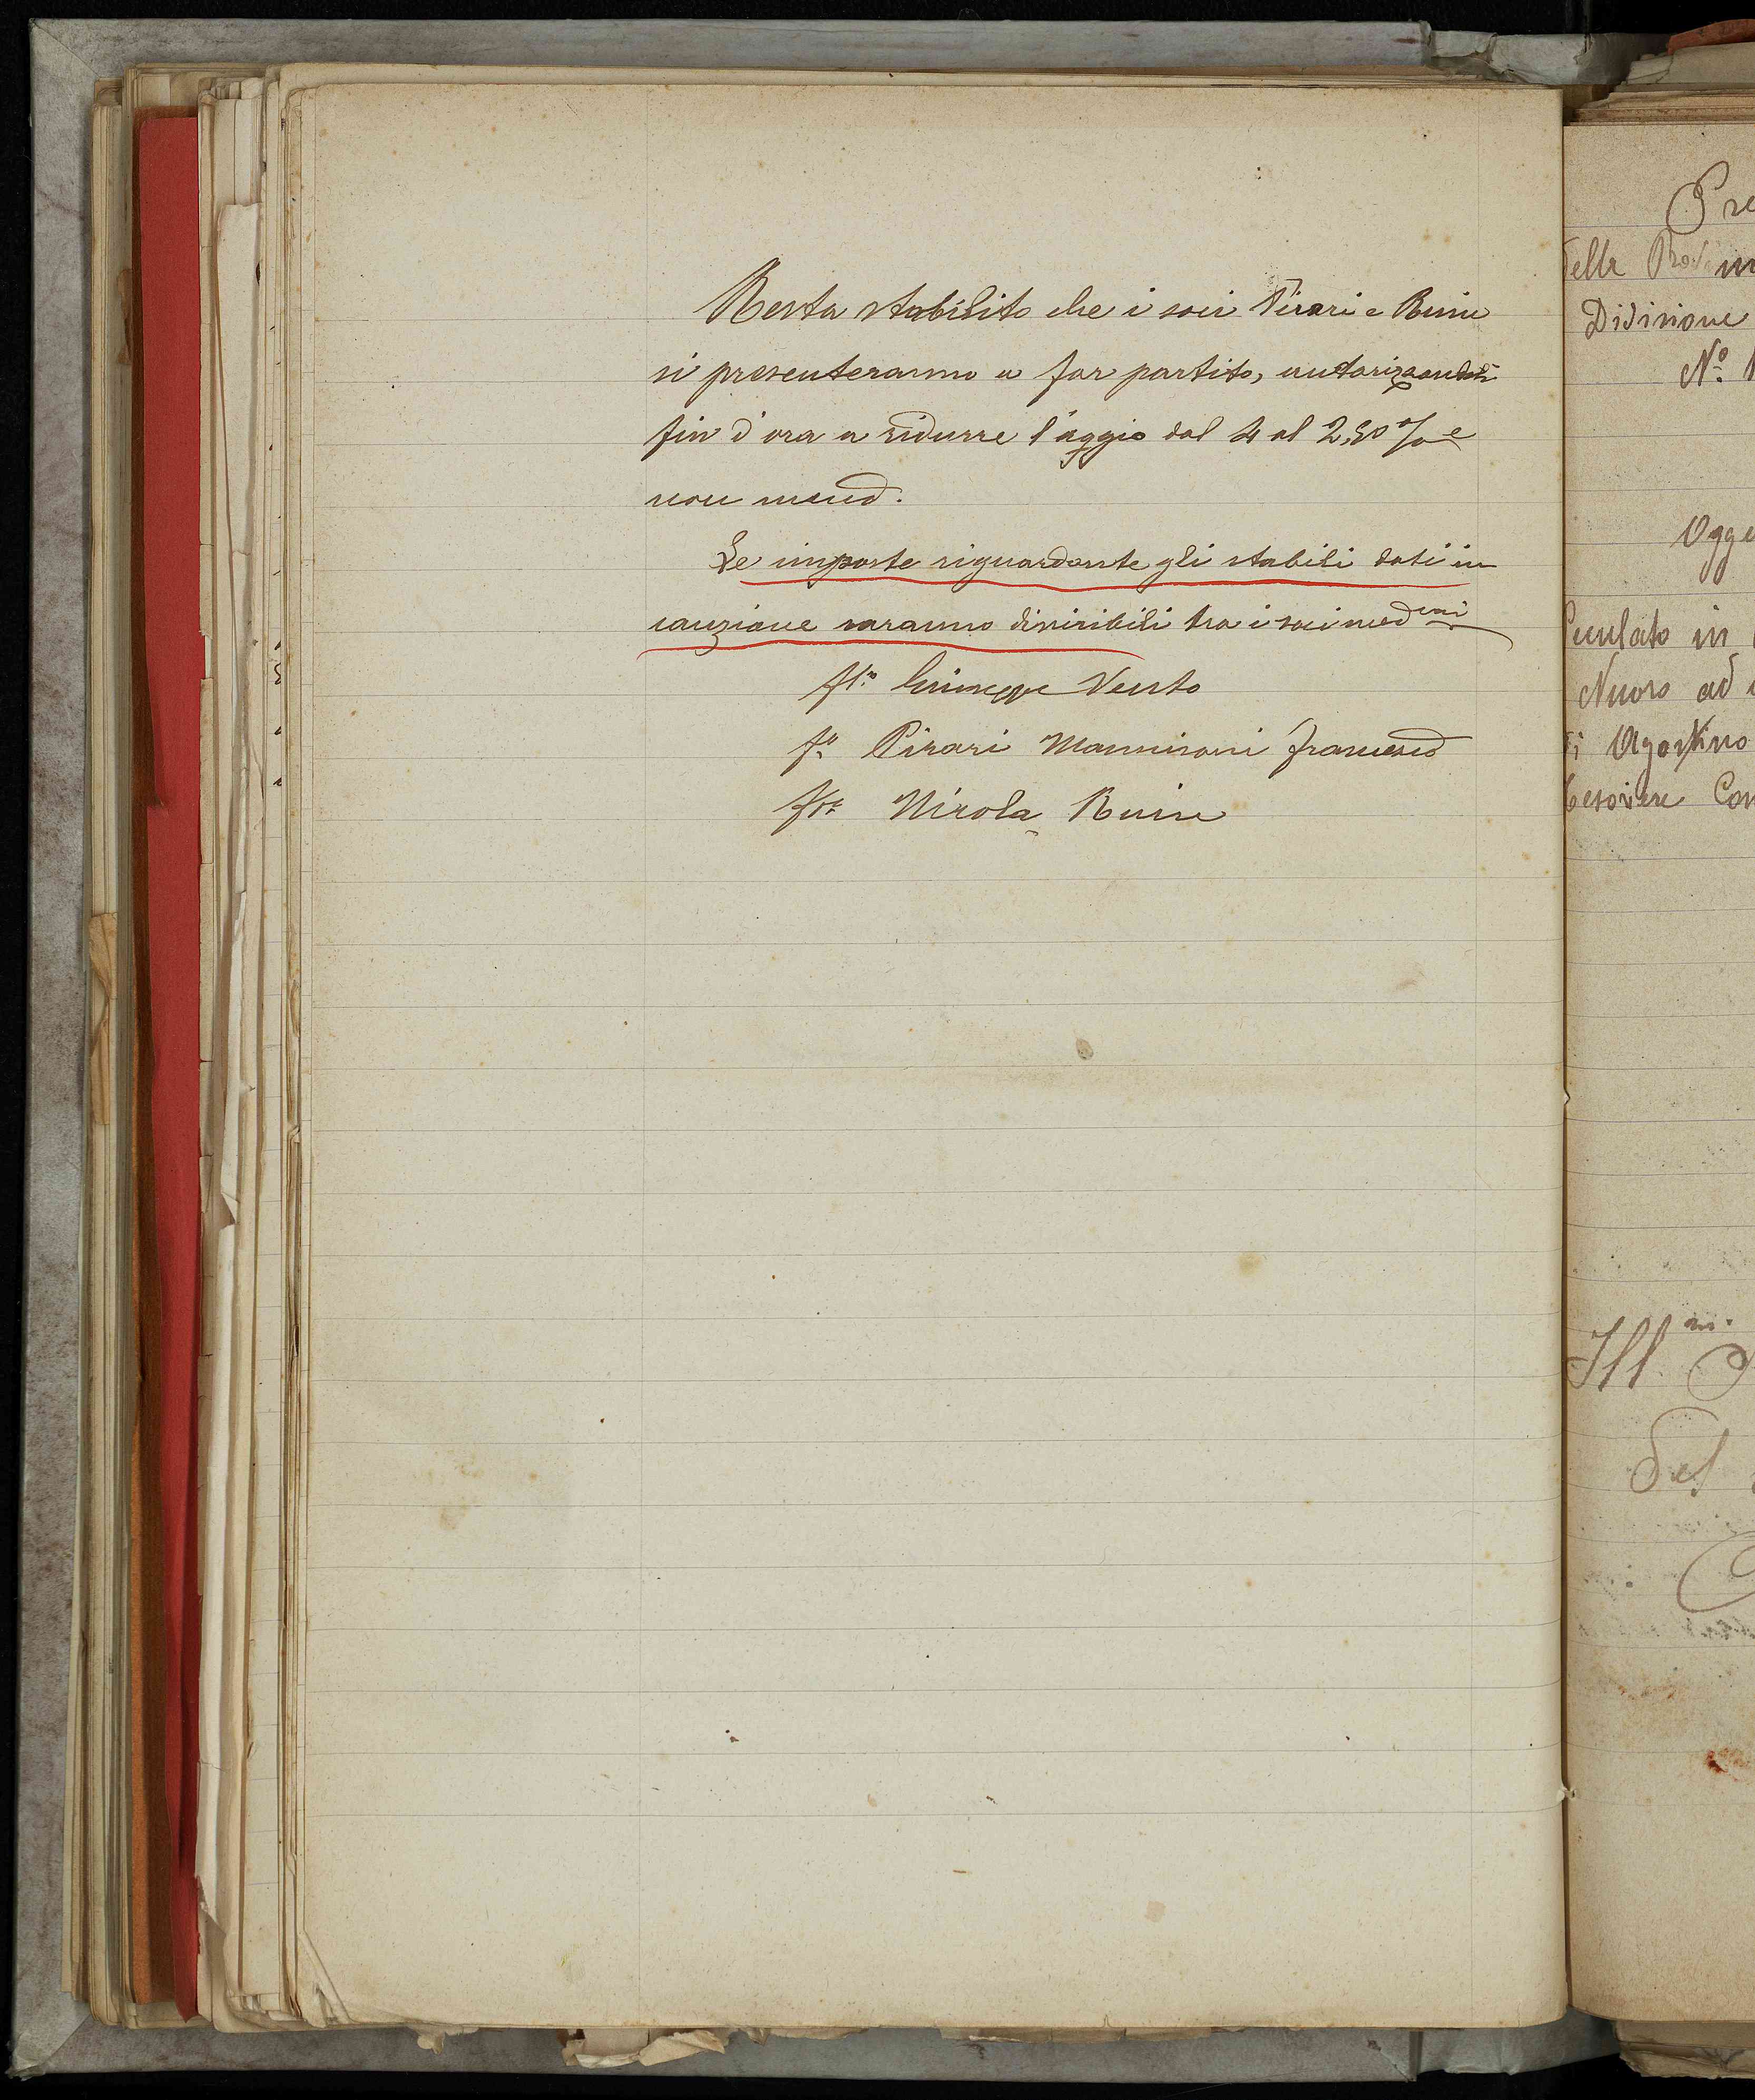 Resta stabilito che i soci Pirari e Ruiu
si presenteranno a far partito, autorizzandoli
fin d'ora a ridurre l'aggio dal 4 al 2,50 % e
non meno.
Le imposte riguardante gli stabili dati in
cauzione saranno divisibili tra i soci med.mi
f.to Giuseppe Vento
f.o Pirari Mannironi Francesco
f.to Nicola Ruiu
Pre
della
Divisione
N.o 1
Ogge
Peculato in
Nuoro ad
di Agostino
tesoriere Con
Ill.mi
Del